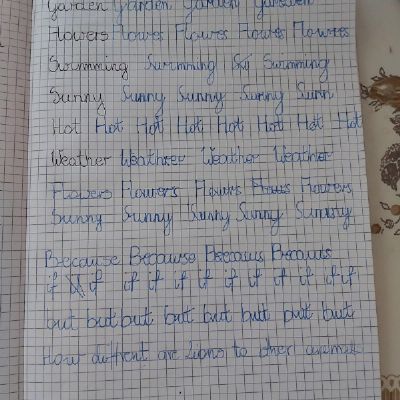 Garden Garden Garden Garden
Flowers Flowers Flowrs Flowers Flowres
Swimming Swimming Swimming
Sunny Sunny Sunny Sunny Sunn
Hot Hot Hot Hot Hot Hot Hot Hot
Weather Weathrer Weather Weather
Flowers Flowers Flowers Flows Flowers
Sunny Sunny Sunny Sunny Sunnsty
Because Because Becaus Becaus
if if if if if if if if if if if
but but but but but but but but
How diffrent are Lions to other animals